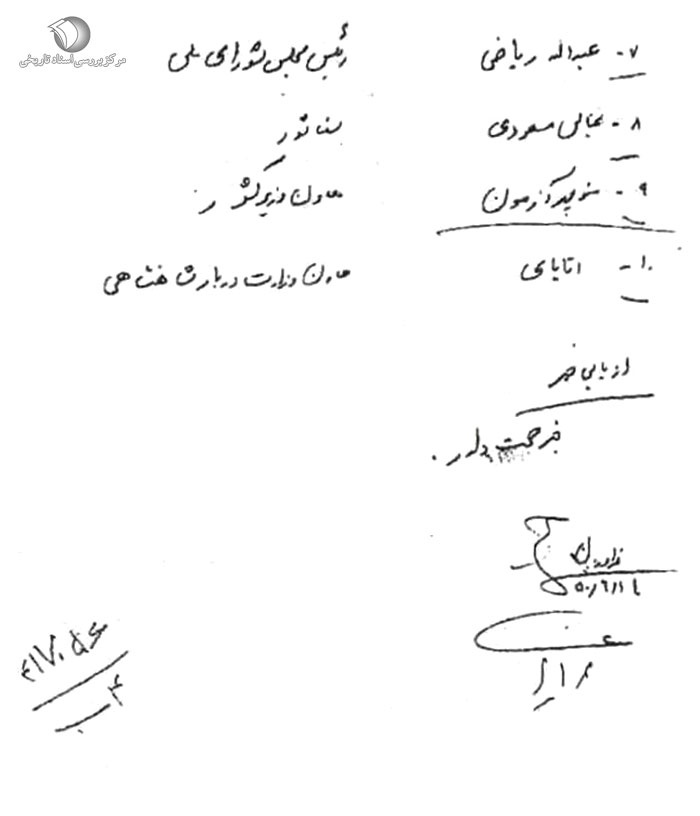 مرکز بررسی اسناد تاریخی
۷- عبداله ریاضی رئیس مجلس شورای ملی
۸- عباس مسعودی سناتور
۹- منوچهر آزمون معاون وزیر کشور
۱۰- اتابای معاون وزارت دربار شاهنشاهی
ارزیابی خبر
خبر صحت دارد.